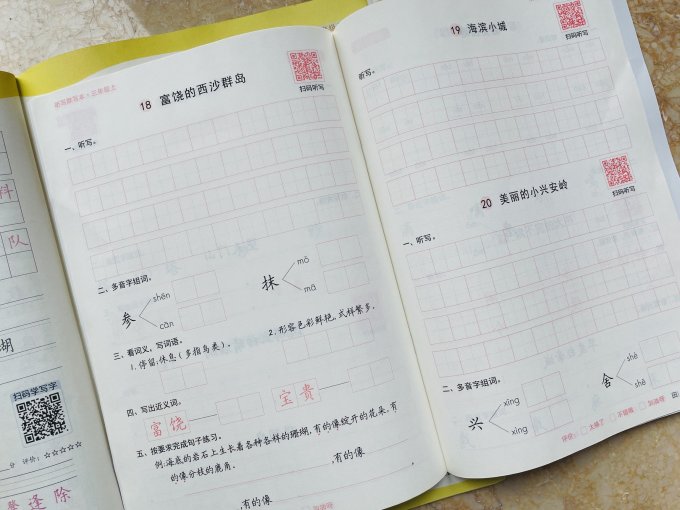 听写默写本·三年级上
18 富饶的西沙群岛
扫码听写
一、听写。
二、多音字组词。
参
shēn
cān
抹
mǒ
mā
三、看词义，写词语。
1. 停留；休息（多指鸟类）。
2. 形容色彩鲜艳，式样繁多。
四、写出近义词。
富饶
宝贵
五、按要求完成句子练习。
例：海底的岩石上生长着各种各样的珊瑚，有的像绽开的花朵，有
的像分枝的鹿角。
，有的像
，有的像
19 海滨小城
扫码听写
听写。
20 美丽的小兴安岭
扫码听写
一、听写。
二、多音字组词。
兴
xīng
xìng
舍
shě
shè
评价：
太棒了
不错哦
队
瑚
扫码学写字
评价：☆☆☆☆☆
逢 除